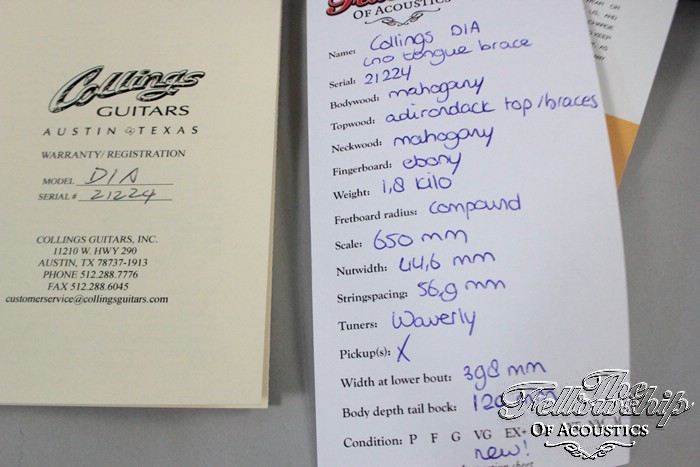 Collings
GUITARS
AUSTIN TEXAS
WARRANTY/REGISTRATION
MODEL D1A
SERIAL # 21224
COLLINGS GUITARS, INC.
11210 W. HWY 290
AUSTIN, TX 78737-1913
PHONE 512.288.7776
FAX 512.288.6045
customerservice@collingsguitars.com
OF ACOUSTICS
Name: Collings D1A
(no tongue brace
Serial: 21224
Bodywood: mahogany
Topwood: adirondack top/braces
Neckwood: mahogany
Fingerboard: ebony
Weight: 1,8 kilo
Fretboard radius: compound
Scale: 650 mm
Nutwidth: 44,6 mm
Stringspacing: 56,9 mm
Tuners: Waverly
Pickup(s): X
Width at lower bout: 398 mm
Body depth tail bock: 120 mm
Condition: P F G VG EX+
new!
YEAR OR
US, AND
CHARGE
KEEP
AS
The
Fellowship
OF ACOUSTICS